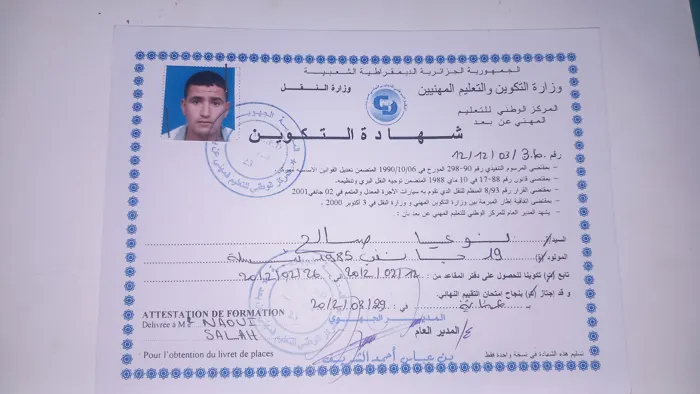 الجمهورية الجزائرية الديمقراطية الشعبية
وزارة التكوين والتعليم المهنيين
وزارة النقل
المركز الوطني للتعليم
المهني عن بعد
شهادة التكوين
رقم 12/12/03/
- بمقتضى المرسوم التنفيذي رقم 90-298 المؤرخ في 1990/10/06 المتضمن تعديل القوانين الأساسية
- بمقتضى قانون رقم 88-17 في 10 ماي 1988 المتضمن توجيه النقل البري وتنظيمه.
- بمقتضى القرار رقم 8/93 المنظم للنقل الذي تقوم به سيارات الأجرة المعدل والمتمم في 02 جانفي 2001
- بمقتضى اتفاقية إطار المبرمة بين وزارة التكوين المهني و وزارة النقل في 3 أكتوبر 2000 .
- يشهد المدير العام للمركز الوطني للتعليم المهني عن بعد بأن :
السيد(ة) صالح
المولود(ة) 19 1985
تابع (ت) تكوينا للحصول على دفتر المقاعد من 2012/02/12 في : 2012/02/26
و قد إجتاز (ت) بنجاح إمتحان التقييم النهائي.
بـ عنابة في : 2012/03/29
المدير الجهوي
المدير العام
بن عباس أحمد الشريف
ATTESTATION DE FORMATION
Délivrée à Mr NAOUI
SALAH
Pour l'obtention du livret de places
تسليم هذه الشهادة في نسخة واحدة فقط